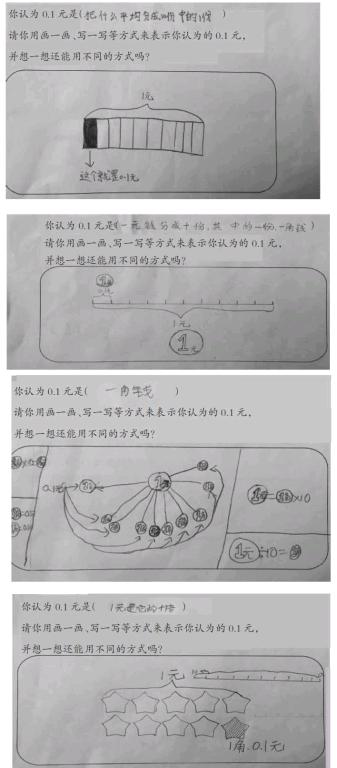 你认为0.1元是(把什么平均分成 中的1份)
请你用画一画、写一写等方式来表示你认为的0.1元,
并想一想还能用不同的方式吗?
1元
这个就是0.1元
你认为0.1元是(一元钱分成十份,其中的一份.一角钱)
请你用画一画、写一写等方式来表示你认为的0.1元,
并想一想还能用不同的方式吗?
1元
1元
你认为0.1元是(一角钱)
请你用画一画、写一写等方式来表示你认为的0.1元,
并想一想还能用不同的方式吗?
×10
1元÷10=
你认为0.1元是(1元是它的十倍)
请你用画一画、写一写等方式来表示你认为的0.1元,
并想一想还能用不同的方式吗?
1元
1角.0.1元